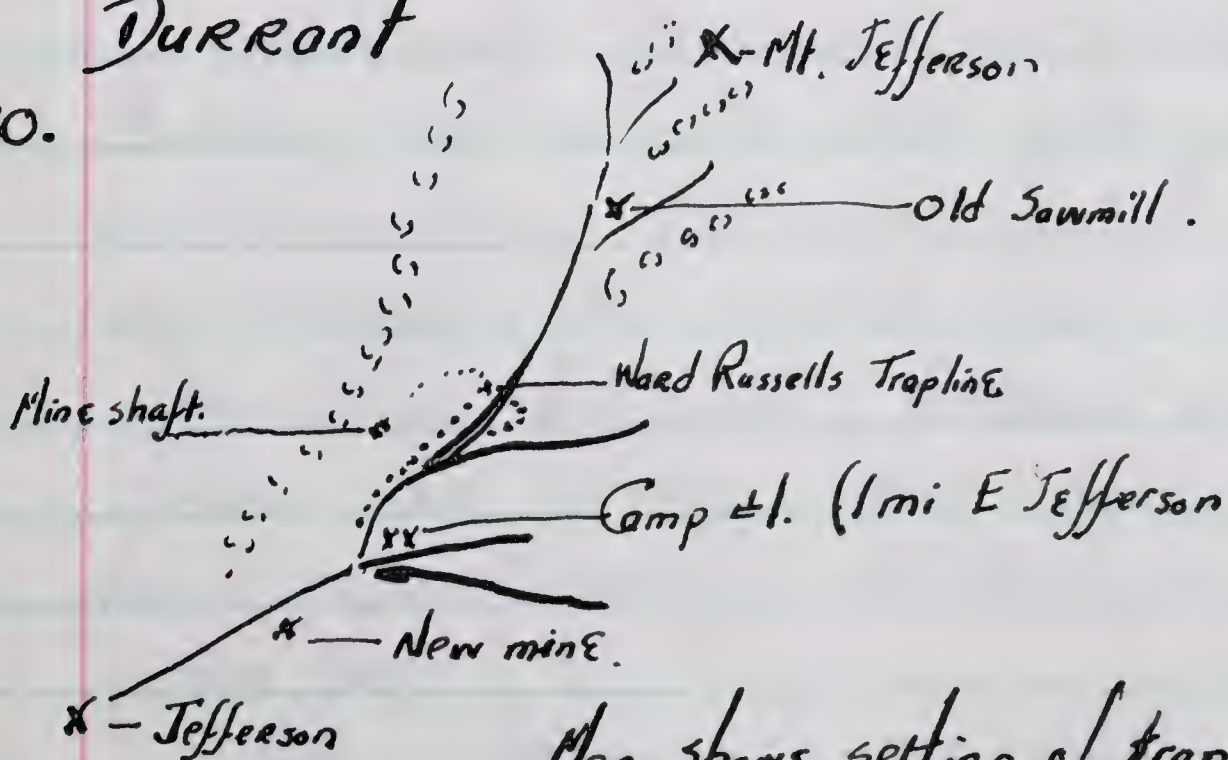 Durrant
0.
X-Mt. Jefferson
Old Sawmill.
Ward Russells Trapline
Mine shaft.
Camp #1. (1 mi E Jefferson
X X
X — New mine.
X — Jefferson
Map shows setting of trap